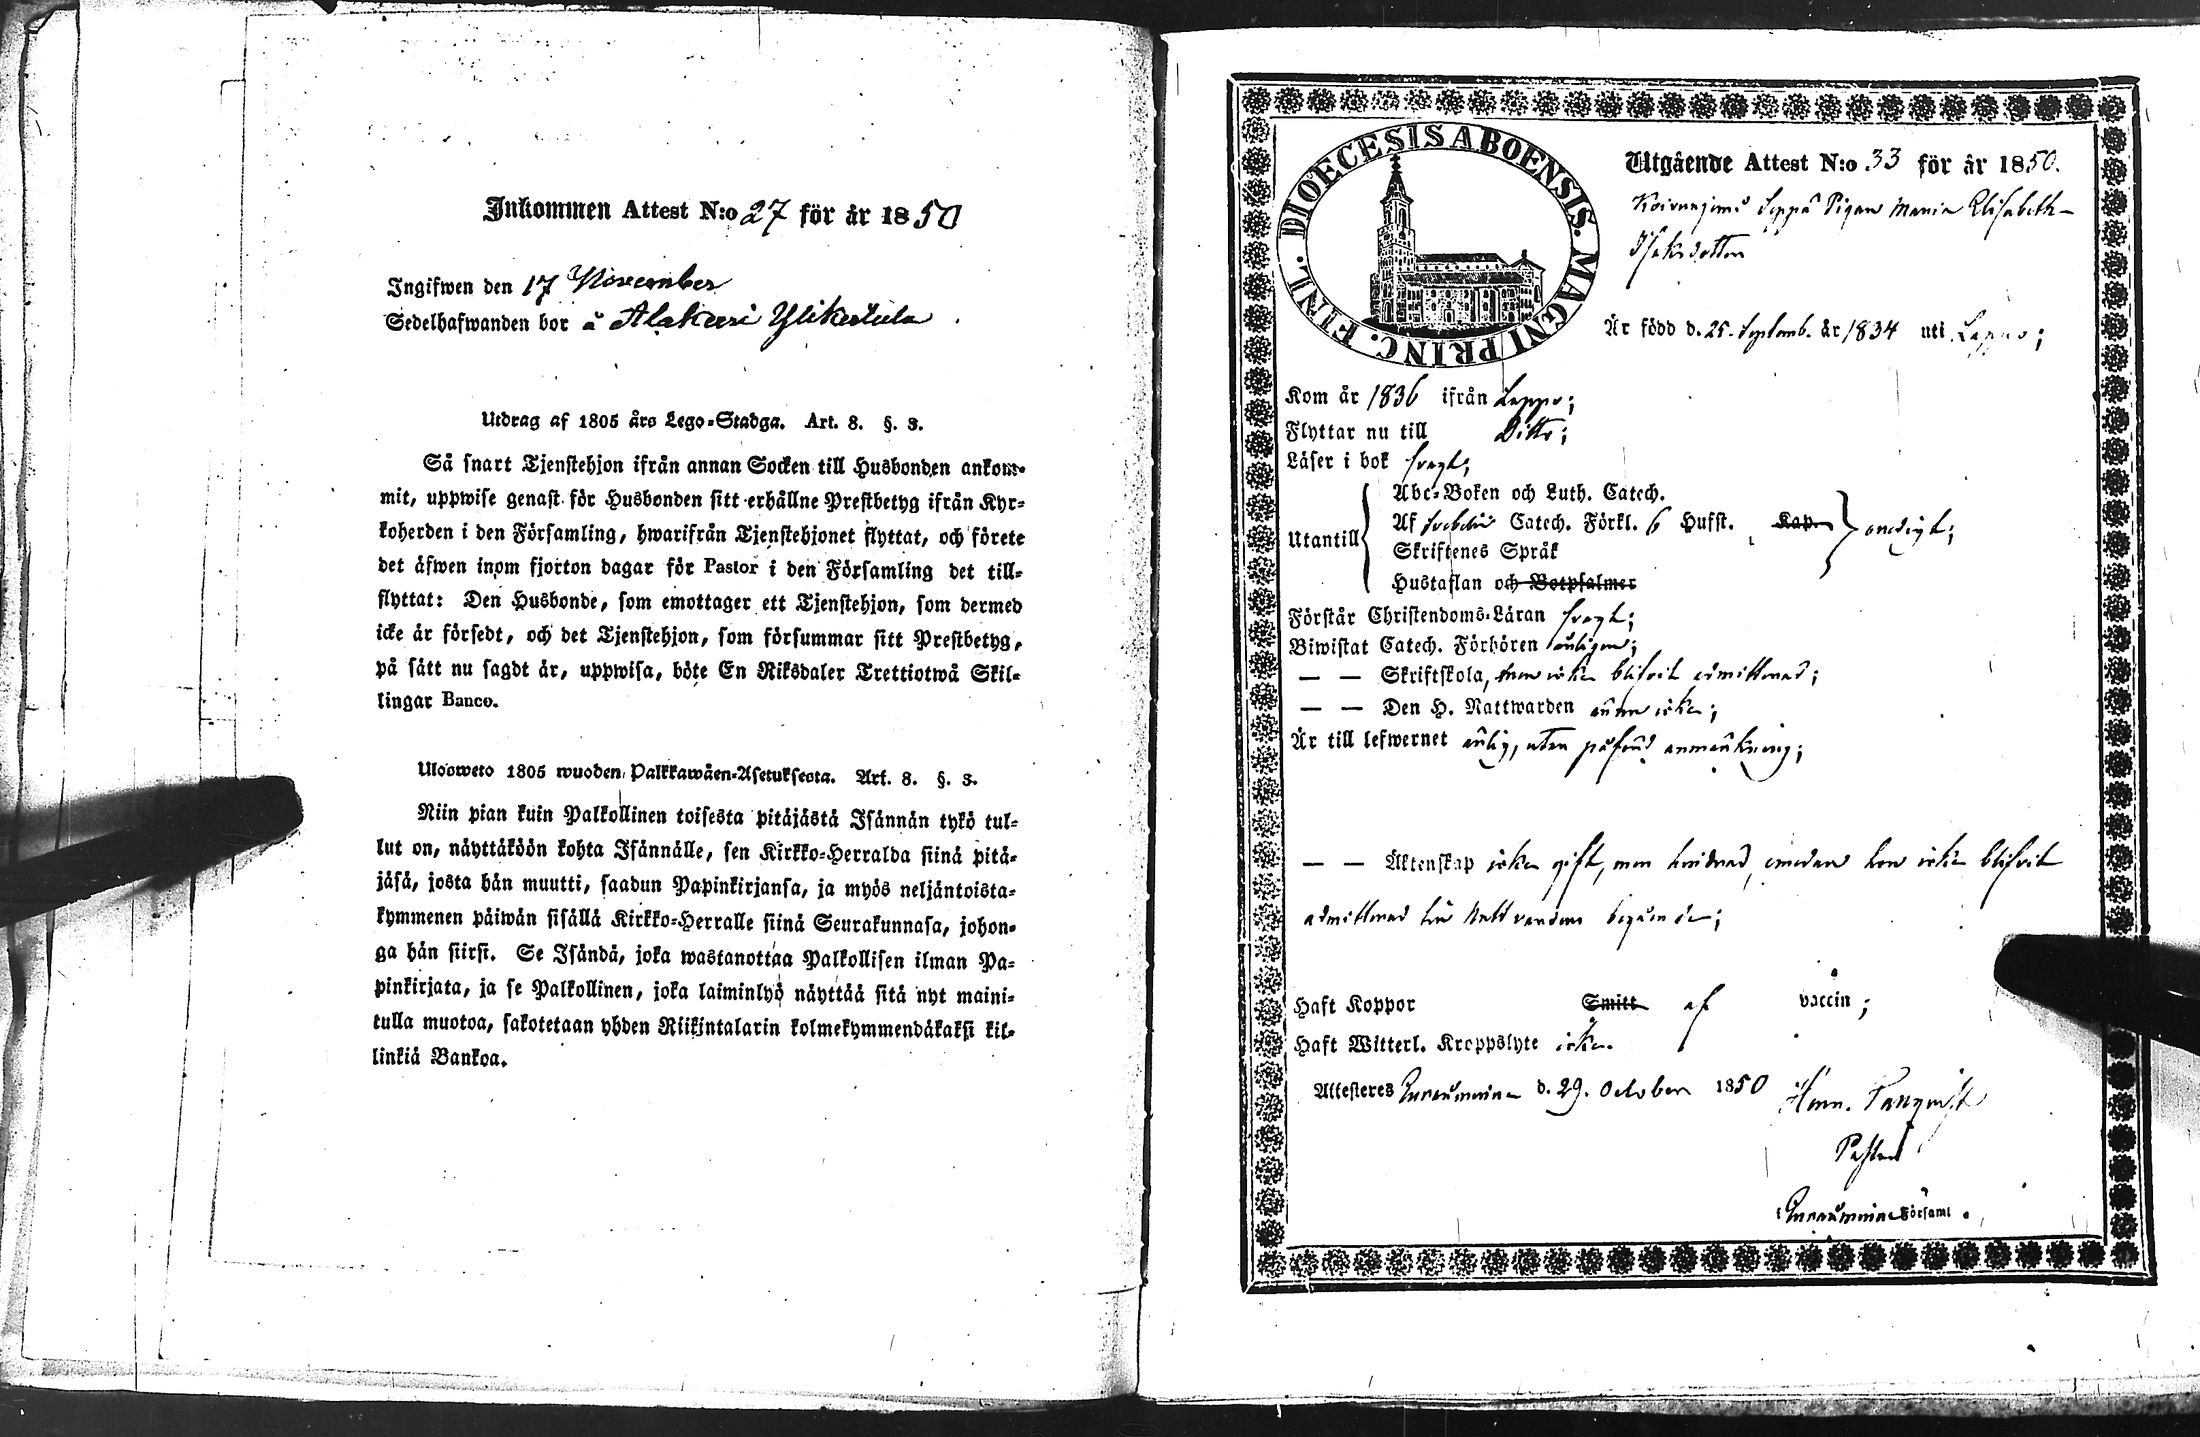 Inkommen Attest N:o 27 för år 1850
Ingifwen den 17 November
Sedelhafwanden bor å Alakuri Ylikestula
Utdrag af 1805 års Lego-Stadga. Art. 8. §. 3.
Så snart Tjenstehjon ifrån annan Socken till Husbonden ankom-
mit, uppwise genast för Husbonden sitt erhållne Prestbetyg ifrån Kyr-
koherden i den Församling, hwarifrån Tjenstehjonet flyttat, och förete
det äfwen inom fjorton dagar för Pastor i den Församling det till-
flyttat: Den Husbonde, som emottager ett Tjenstehjon, som dermed
icke är försedt, och det Tjenstehjon, som försummar sitt Prestbetyg,
på sätt nu sagdt är, uppwisa, böte En Riksdaler Trettiotwå Skil-
lingar Banco.
Ulosweto 1805 wuoden Palkkawäen-Asetuksesta. Art. 8. §. 3.
Niin pian kuin Palkollinen toisesta pitäjästä Isännän tykö tul-
lut on, näyttäköön kohta Isännälle, sen Kirkko-Herralda siinä pitä-
jäsä, josta hän muutti, saadun Papinkirjansa, ja myös neljäntoista-
kymmenen päiwän sisällä Kirkko-Herralle siinä Seurakunnasa, johon-
ga hän siirsi. Se Isändä, joka wastanottaa Palkollisen ilman Pa-
pinkirjata, ja se Palkollinen, joka laiminlyö näyttää sitä nyt maini-
tulla muotoa, sakotetaan yhden Riikintalarin kolmekymmendäkaksi kil-
linkiä Bankoa.
DIOECESIS ABOENSIS. MAGNI PRINC. FINL.
Utgående Attest N:o 33 för år 1850.
Leppä Pigan Maria Elisabeth
Isaksdotter
Är född d. 25. Septemb. år 1834 uti Lappo;
Kom år 1836 ifrån Lappo;
Flyttar nu till Ditto;
Läser i bok svagt;
Utantill
Abc-Boken och Luth. Catech.
Af Svebelii Catech. Förkl. 6 Hufst. Kap.
Skriftenes Språk
Hustaflan och Botpsalmer
Förstår Christendoms-Läran svagt;
Biwistat Catech. Förhören årligen;
— — Skriftskola, men icke blifvit admitterad;
— — Den H. Nattwarden ännu icke;
Är till lefwernet ärlig, utan påförd anmärkning;
— — Äktenskap icke gift, men hindrad, emedan hon icke blifvit
admitterad till Nattvardens begående;
Haft Koppor Smitt af vaccin;
Haft Witterl. Kroppslyte icke.
Attesteres d. 29. October 1850
Pastor
i Församl.